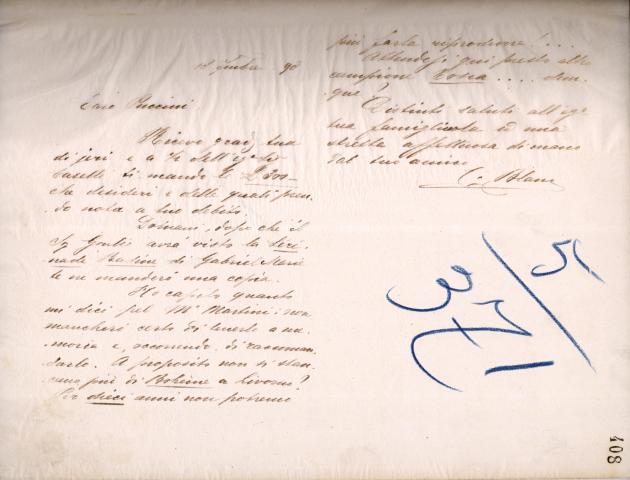 98
Caro Puccini
Ricevo grad. tua
di jeri e a ½ dell'egr.
ti mando le L. 200.-
che desideri e delle quali pren-
do nota a tuo debito.
Domani, dopo che il
Sig. avrà visto la Sere-
nade di Gabriel Marie
te ne manderò una copia.
Ho capito quanto
mi dici pel Mº Martini: non
mancherò certo di tenerlo a me-
moria e, occorrendo, di raccoman-
darlo. A proposito non si stan-
cano più di Bohème a Livorno?
Per dieci anni non potremo
più farla riprodurre!...
Attendesi qui presto altro
campione Tosca.... dun-
que?
Distinti saluti all'eg.
tua famigliuola ed una
stretta affettuosa di mano
dal tuo amico
C. Blanc
408